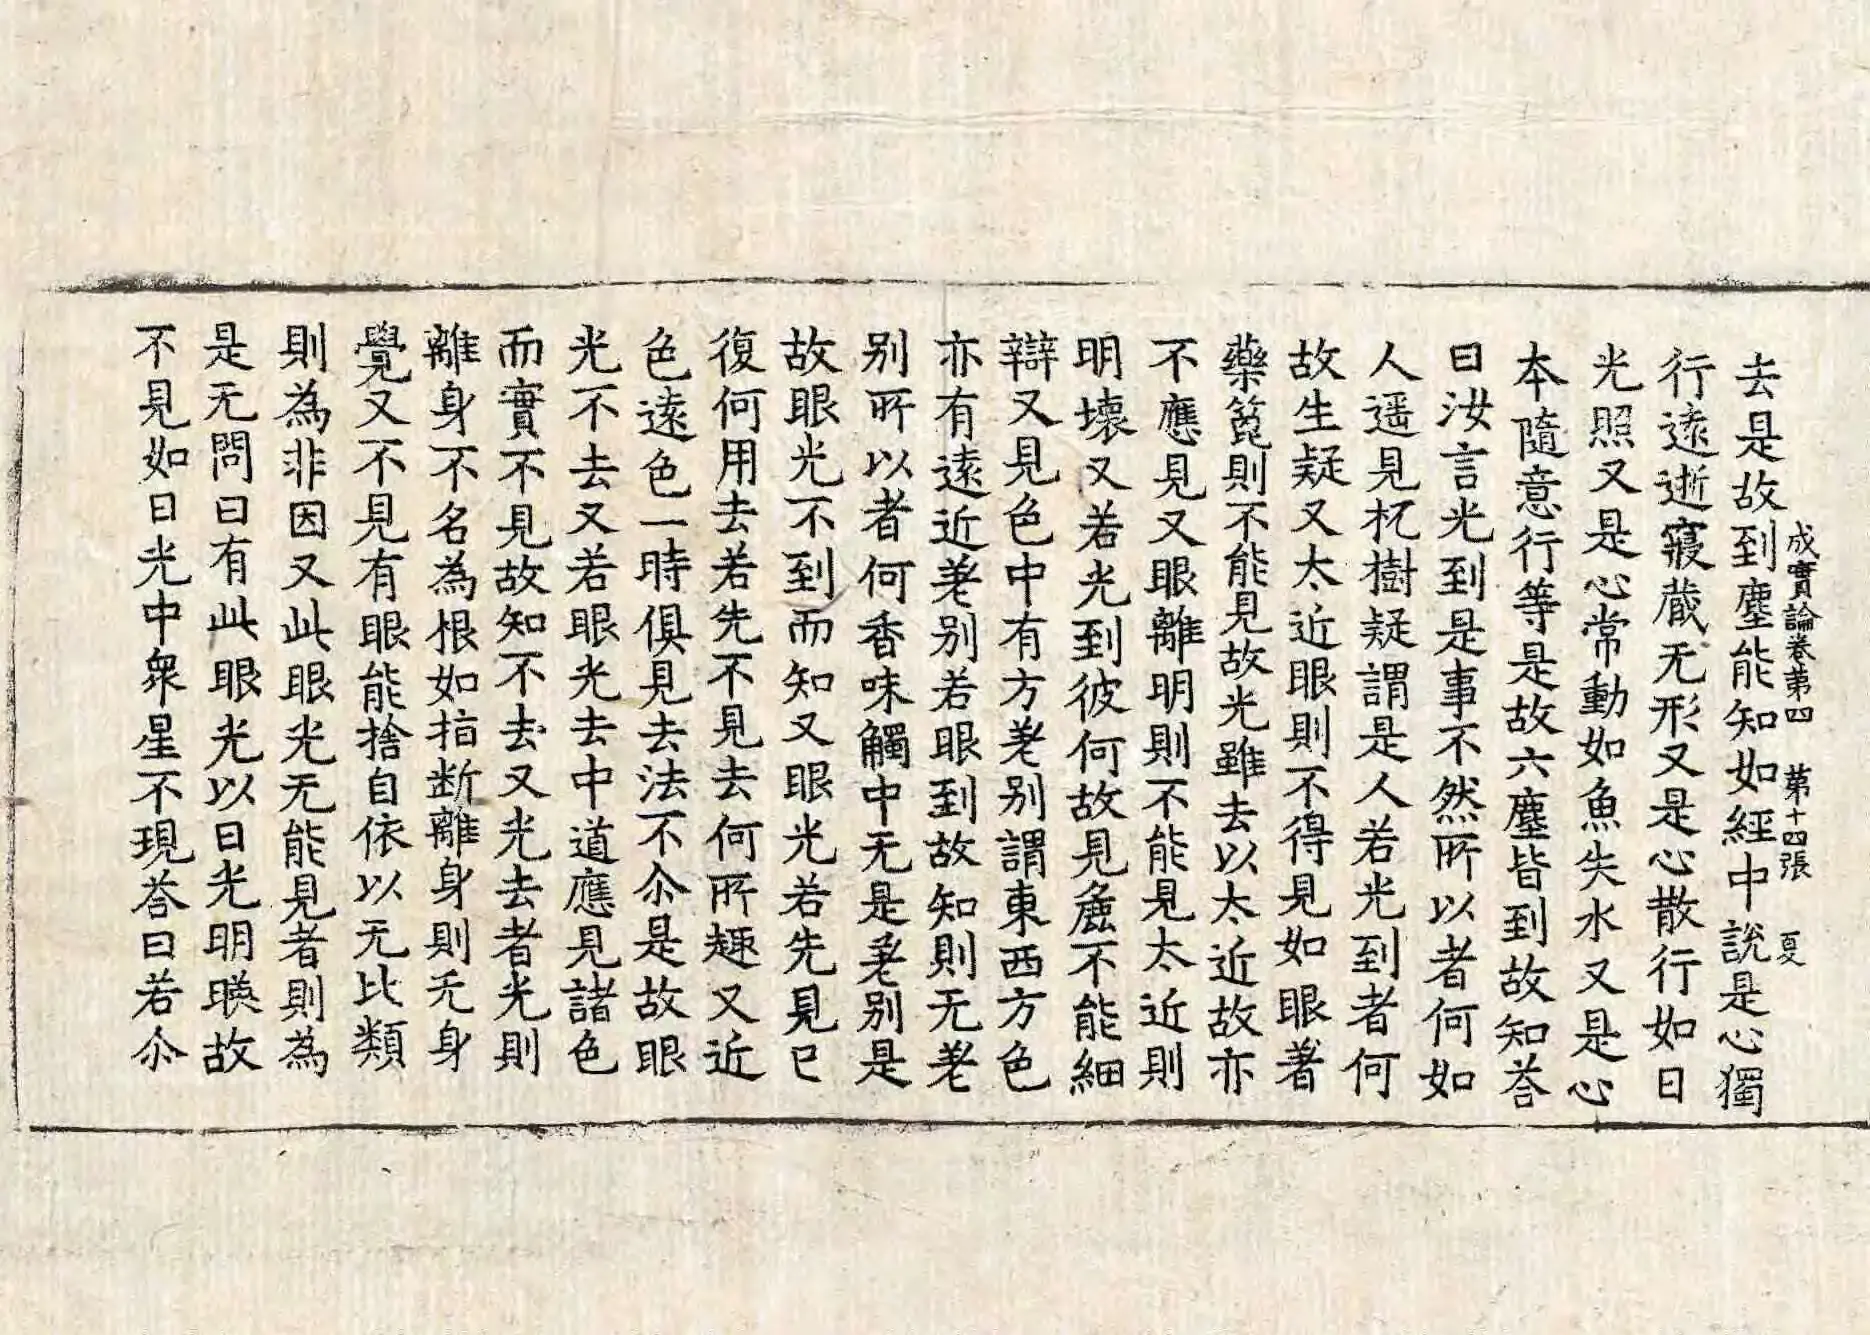 成實論卷苐四　苐十四張　夏
去是故到塵能知如經中說是心獨
行逺逝寢蔵无形又是心散行如日
光照又是心常動如魚失水又是心
本隨意行等是故六塵皆到故知荅
曰汝言光到是事不然所以者何如
人遥見杌樹疑謂是人若光到者何
故生疑又太近眼則不得見如眼著
藥篦則不能見故光雖去以太近故亦
不應見又眼離明則不能見太近則
明壞又若光到彼何故見麁不能細
辯又見色中有方差別謂東西方色
亦有遠近差別若眼到故知則无差
別所以者何香味觸中无是差別是
故眼光不到而知又眼光若先見已
復何用去若先不見去何所趣又近
色遠色一時俱見去法不尒是故眼
光不去又若眼光去中道應見諸色
而實不見故知不去又光去者光則
離身不名為根如指断離身則无身
覺又不見有眼能捨自依以无比類
則為非因又此眼光无能見者則為
是无問曰有此眼光以日光明暎故
不見如日光中衆星不現荅曰若尒